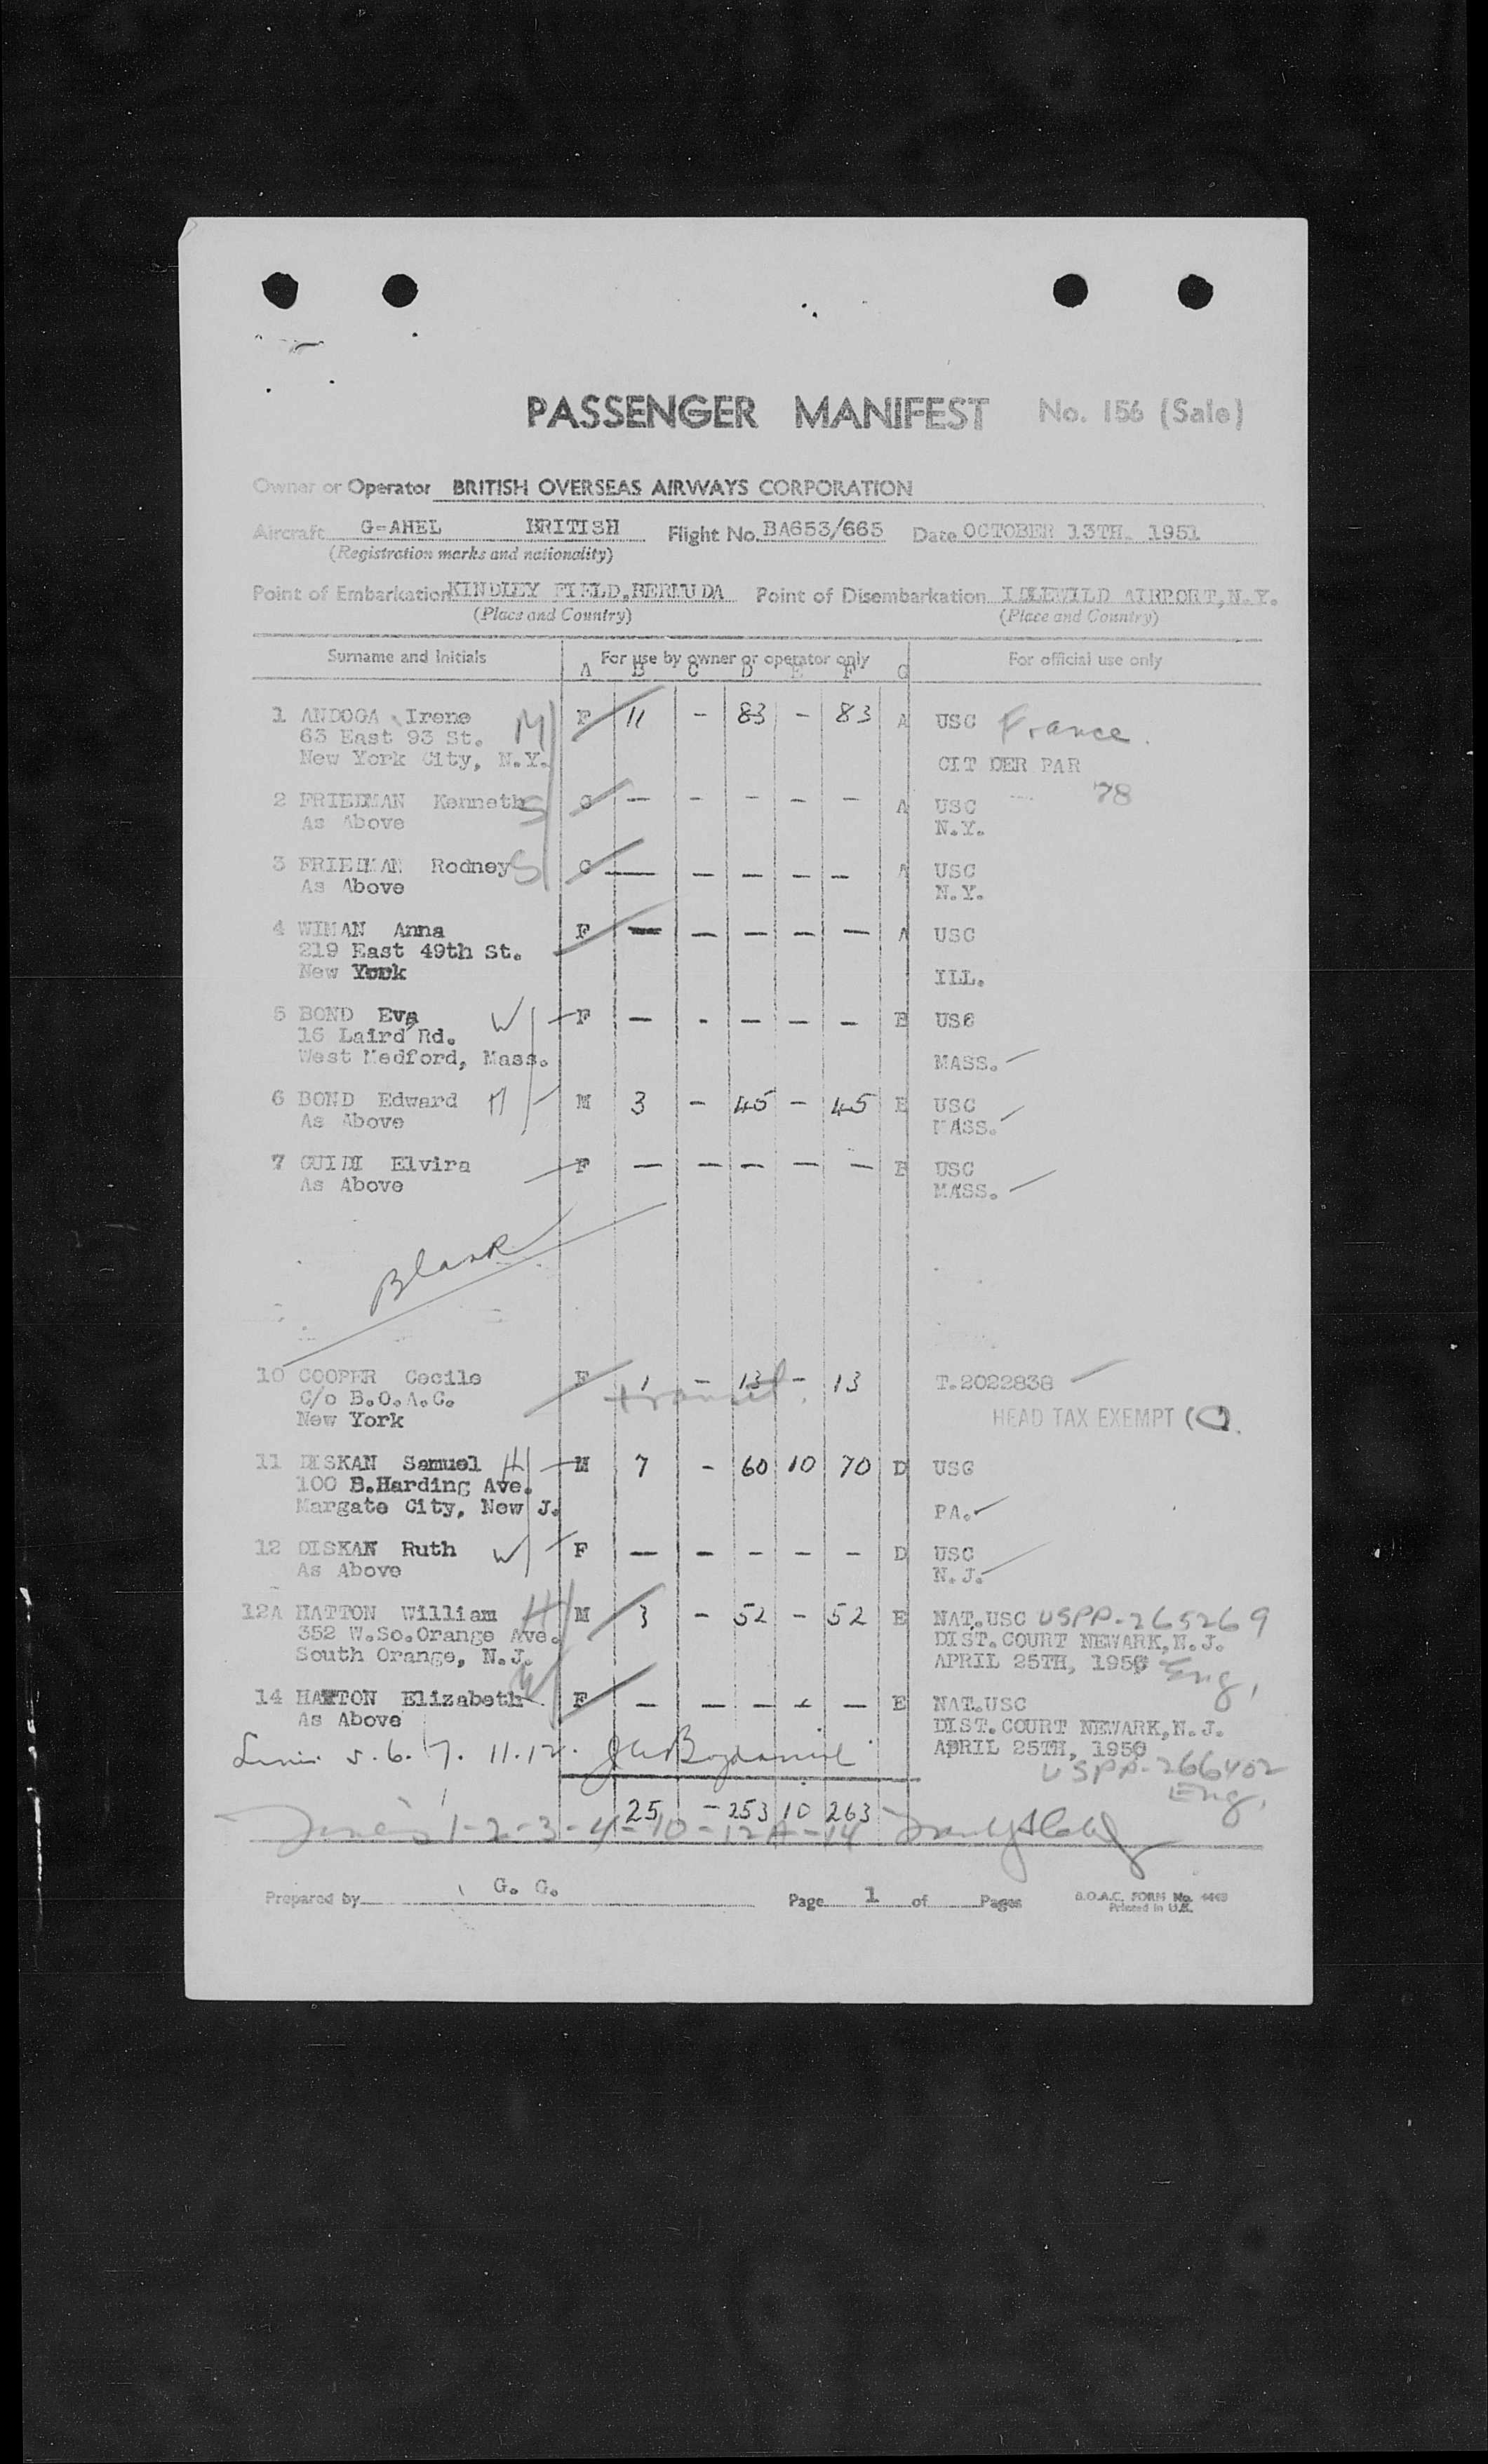 PASSENGER MANIFEST No. 156 (Sale)
Owner or Operator BRITISH OVERSEAS AIRWAYS CORPORATION
Aircraft G-AHEL BRITISH Flight No. BA653/665 Date OCTOBER 13TH. 1951
(Registration marks and nationality)
Point of Embarkation KINDLEY FIELD, BERMUDA Point of Disembarkation IDLEWILD AIRPORT, N.Y.
(Place and Country) (Place and Country)
Surname and Initials For use by owner or operator only For official use only
A B C D E F G
1 ANDOGA Irene M F 11 - 83 - 83 A USC France.
63 East 93 St.
New York City, N.Y. CIT DER PAR
78
2 FRIEDMAN Kenneth S C - - - - - A USC
As Above N.Y.
3 FRIEDMAN Rodney S C - - - - - A USC
As Above N.Y.
4 WIMAN Anna F - - - - - A USC
219 East 49th St.
New York ILL.
5 BOND Eva W F - - - - - E USC
16 Laird Rd.
West Medford, Mass. MASS.
6 BOND Edward H M 3 - 45 - 45 E USC
As Above MASS.
7 GUIDI Elvira F - - - - - E USC
As Above MASS.
Blank
10 COOPER Cecile F 1 - 13 - 13 T.2022838
transit.
C/o B.O.A.C.
New York HEAD TAX EXEMPT (C).
11 DISKAN Samuel H M 7 - 60 10 70 D USC
100 B.Harding Ave.
Margate City, New J. PA.
12 DISKAN Ruth W F - - - - - D USC
As Above N.J.
12A HATTON William H M 3 - 52 - 52 E NAT.USC USPP-265269
352 W.So.Orange Ave. DIST.COURT NEWARK, N.J.
South Orange, N.J. APRIL 25TH, 1950 Eng.
14 HATTON Elizabeth W F - - - - - E NAT.USC
As Above DIST.COURT NEWARK, N.J.
5. 6. 7. 11. 12. APRIL 25TH, 1950
USPP-266402
Eng.
25 - 253 10 263
1-2-3-4-10-12A-14
Prepared by G. G. Page 1 of Pages B.O.A.C. FORM No. 4448
Printed in U.K.